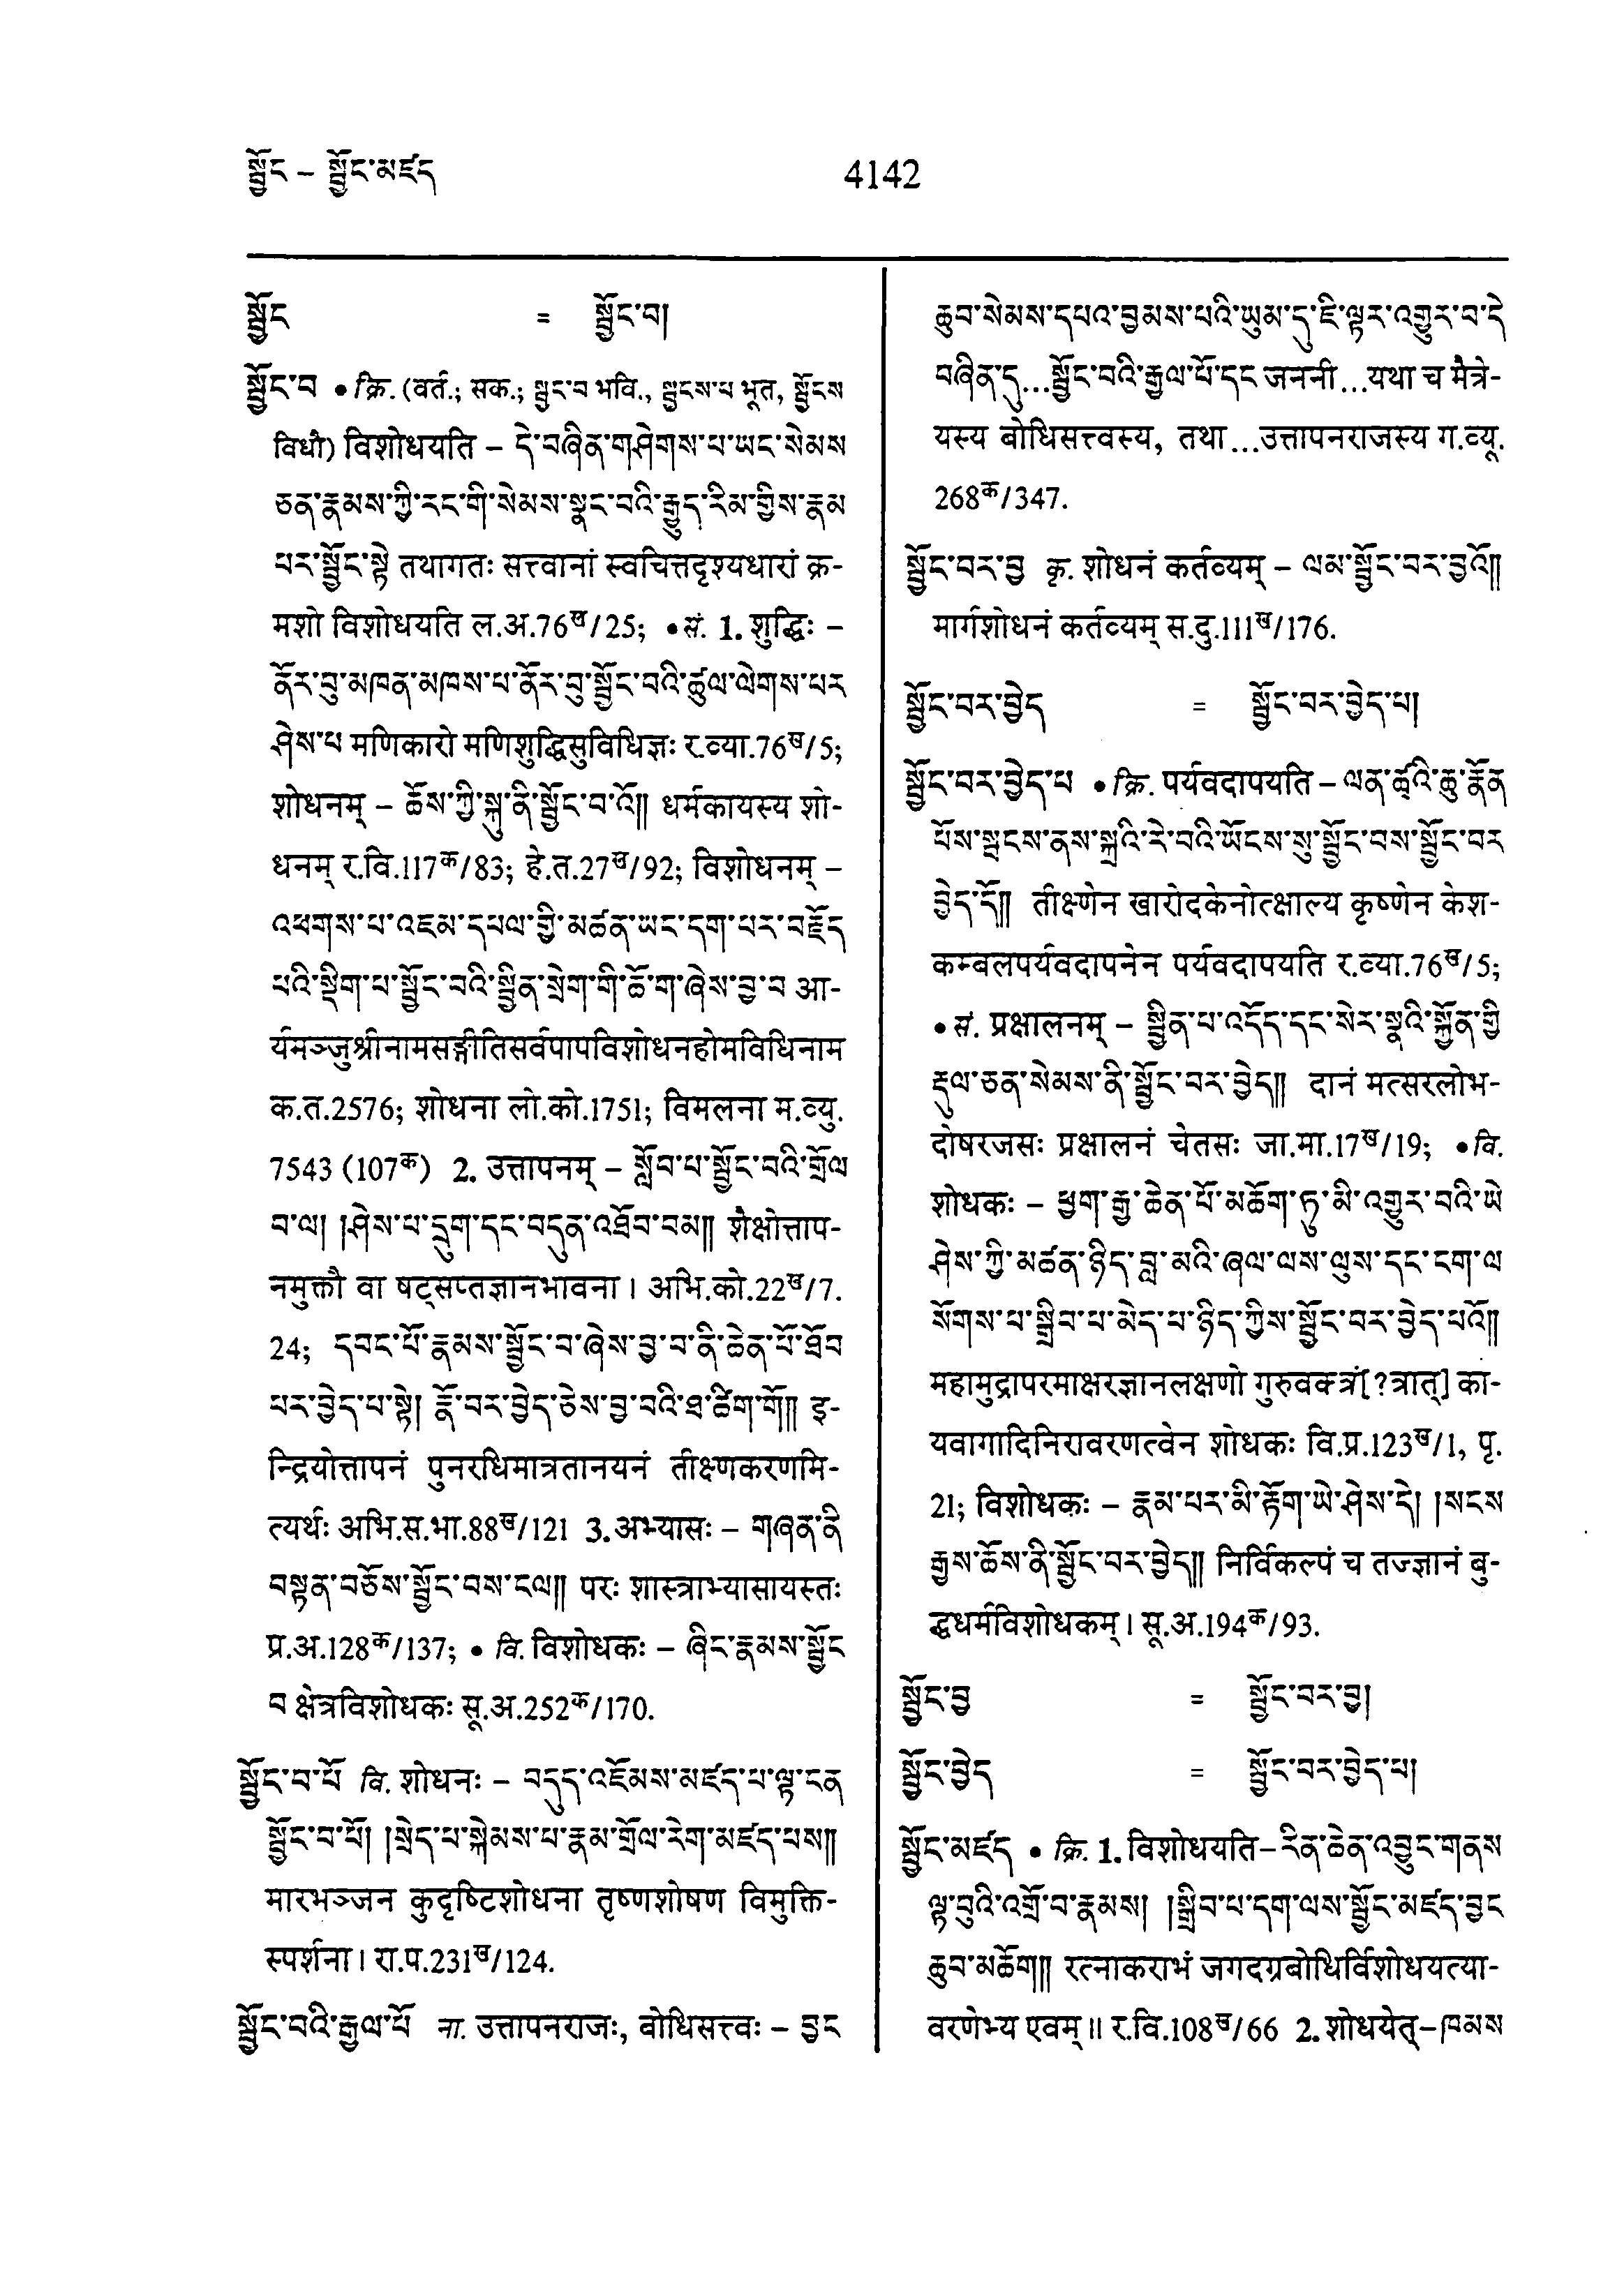 སྦྱོང – སྦྱོང་མཛད
4142
སྦྱོང = སྦྱོང་བ།
སྦྱོང་བ • क्रि. (वर्त.; सक.; སྦྱང་བ भवि., སྦྱངས་པ भूत, སྦྱོངས
विधौ) विशोधयति – དེ་བཞིན་གཤེགས་པ་ཡང་སེམས
ཅན་རྣམས་ཀྱི་རང་གི་སེམས་སྣང་བའི་རྒྱུད་རིམ་གྱིས་རྣམ
པར་སྦྱོང་སྟེ तथागतः सत्त्वानां स्वचित्तदृश्यधारां क्र-
मशो विशोधयति ल.अ.76ख/25; • सं. 1. शुद्धिः –
ནོར་བུ་མཁན་མཁས་པ་ནོར་བུ་སྦྱོང་བའི་ཚུལ་ལེགས་པར
ཤེས་པ मणिकारो मणिशुद्धिसुविधिज्ञः र.व्या.76ख/5;
शोधनम् – ཆོས་ཀྱི་སྐུ་ནི་སྦྱོང་བ་འོ༎ धर्मकायस्य शो-
धनम् र.वि.117क/83; हे.त.27ख/92; विशोधनम् –
འཕགས་པ་འཇམ་དཔལ་གྱི་མཚན་ཡང་དག་པར་བརྗོད
པའི་སྡིག་པ་སྦྱོང་བའི་སྦྱིན་སྲེག་གི་ཆོ་ག་ཞེས་བྱ་བ आ-
र्यमञ्जुश्रीनामसङ्गीतिसर्वपापविशोधनहोमविधिनाम
क.त.2576; शोधना लो.को.1751; विमलना म.व्यु.
7543 (107क) 2. उत्तापनम् – སློབ་པ་སྦྱོང་བའི་གྲོལ
བ་ལ། །ཤེས་པ་དྲུག་དང་བདུན་འཐོབ་བམ༎ शैक्षोत्ताप-
नमुक्तौ वा षट्सप्तज्ञानभावना। अभि.को.22ख/7.
24; དབང་པོ་རྣམས་སྦྱོང་བ་ཞེས་བྱ་བ་ནི་ཆེན་པོ་ཐོབ
པར་བྱེད་པ་སྟེ། རྣོ་བར་བྱེད་ཅེས་བྱ་བའི་ཐ་ཚིག་གོ༎ इ-
न्द्रियोत्तापनं पुनरधिमात्रतानयनं तीक्ष्णकरणमि-
त्यर्थः अभि.स.भा.88ख/121 3. अभ्यासः – གཞན་ནི
བསྟན་བཅོས་སྦྱོང་བས་ངལ༎ परः शास्त्राभ्यासायस्तः
प्र.अ.128क/137; • वि. विशोधकः – ཞིང་རྣམས་སྦྱོང
བ क्षेत्रविशोधकः सू.अ.252क/170.
སྦྱོང་བ་པོ वि. शोधनः – བདུད་འཇོམས་མཛད་པ་ལྟ་ངན
སྦྱོང་བ་པོ། །སྲེད་པ་སྐེམས་པ་རྣམ་གྲོལ་རེག་མཛད་པས༎
मारभञ्जन कुदृष्टिशोधना तृष्णशोषण विमुक्ति-
स्पर्शना। रा.प.231ख/124.
སྦྱོང་བའི་རྒྱལ་པོ ना. उत्तापनराजः, बोधिसत्त्वः – བྱང
ཆུབ་སེམས་དཔའ་བྱམས་པའི་ཡུམ་དུ་ཇི་ལྟར་འགྱུར་བ་དེ
བཞིན་དུ...སྦྱོང་བའི་རྒྱལ་པོ་དང जननी...यथा च मैत्रे-
यस्य बोधिसत्त्वस्य, तथा...उत्तापनराजस्य ग.व्यू.
268क/347.
སྦྱོང་བར་བྱ कृ. शोधनं कर्तव्यम् – ལམ་སྦྱོང་བར་བྱའོ༎
मार्गशोधनं कर्तव्यम् स.दु.111ख/176.
སྦྱོང་བར་བྱེད = སྦྱོང་བར་བྱེད་པ།
སྦྱོང་བར་བྱེད་པ • क्रि. पर्यवदापयति – ལན་ཚྭའི་ཆུ་རྣོན
པོས་སྦངས་ནས་སྐྲའི་རེ་བའི་ཡོངས་སུ་སྦྱོང་བས་སྦྱོང་བར
བྱེད་དོ༎ तीक्ष्णेन खारोदकेनोत्क्षाल्य कृष्णेन केश-
कम्बलपर्यवदापनेन पर्यवदापयति र.व्या.76ख/5;
• सं. प्रक्षालनम् – སྦྱིན་པ་འདོད་དང་སེར་སྣའི་སྐྱོན་གྱི
རྡུལ་ཅན་སེམས་ནི་སྦྱོང་བར་བྱེད༎ दानं मत्सरलोभ-
दोषरजसः प्रक्षालनं चेतसः जा.मा.17ख/19; • वि.
शोधकः – ཕྱག་རྒྱ་ཆེན་པོ་མཆོག་ཏུ་མི་འགྱུར་བའི་ཡེ
ཤེས་ཀྱི་མཚན་ཉིད་བླ་མའི་ཞལ་ལས་ལུས་དང་ངག་ལ
སོགས་པ་སྒྲིབ་པ་མེད་པ་ཉིད་ཀྱིས་སྦྱོང་བར་བྱེད་པའོ༎
महामुद्रापरमाक्षरज्ञानलक्षणो गुरुवक्त्रं[?त्रात्] का-
यवागादिनिरावरणत्वेन शोधकः वि.प्र.123ख/1, पृ.
21; विशोधकः – རྣམ་པར་མི་རྟོག་ཡེ་ཤེས་དེ། །སངས
རྒྱས་ཆོས་ནི་སྦྱོང་བར་བྱེད༎ निर्विकल्पं च तज्ज्ञानं बु-
द्धधर्मविशोधकम्। सू.अ.194क/93.
སྦྱོང་བྱ = སྦྱོང་བར་བྱ།
སྦྱོང་བྱེད = སྦྱོང་བར་བྱེད་པ།
སྦྱོང་མཛད • क्रि. 1. विशोधयति – རིན་ཆེན་འབྱུང་གནས
ལྟ་བུའི་འགྲོ་བ་རྣམས། །སྒྲིབ་པ་དག་ལས་སྦྱོང་མཛད་བྱང
ཆུབ་མཆོག༎ रत्नाकराभं जगदग्रबोधिर्विशोधयत्या-
वरणेभ्य एवम्॥ र.वि.108ख/66 2. शोधयेत् – ཁམས